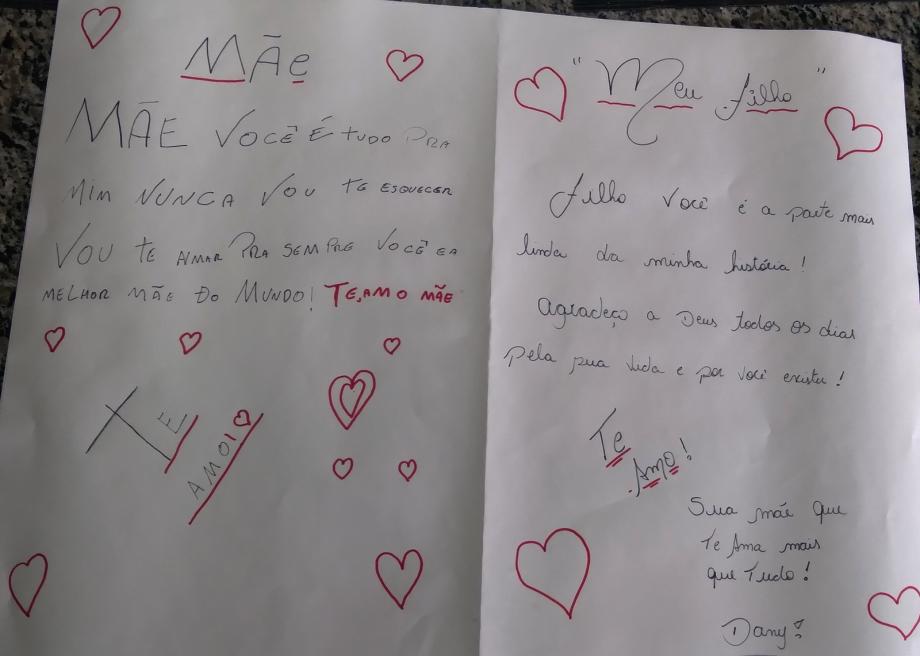 MÃe
MÃE VOCÊ É TUDO PRA
MIM NUNCA VOU TE ESQUECER
VOU TE AMAR PRA SEMPRE VOCÊ E A
MELHOR MÃE DO MUNDO! TE AMO MÃE
TE
AMO!
"Meu filho"
filho você é a parte mais
linda da minha história!
Agradeço a Deus todos os dias
pela sua vida e por você existir!
Te
Amo!
Sua mãe que
Te Ama mais
que Tudo!
Dany!